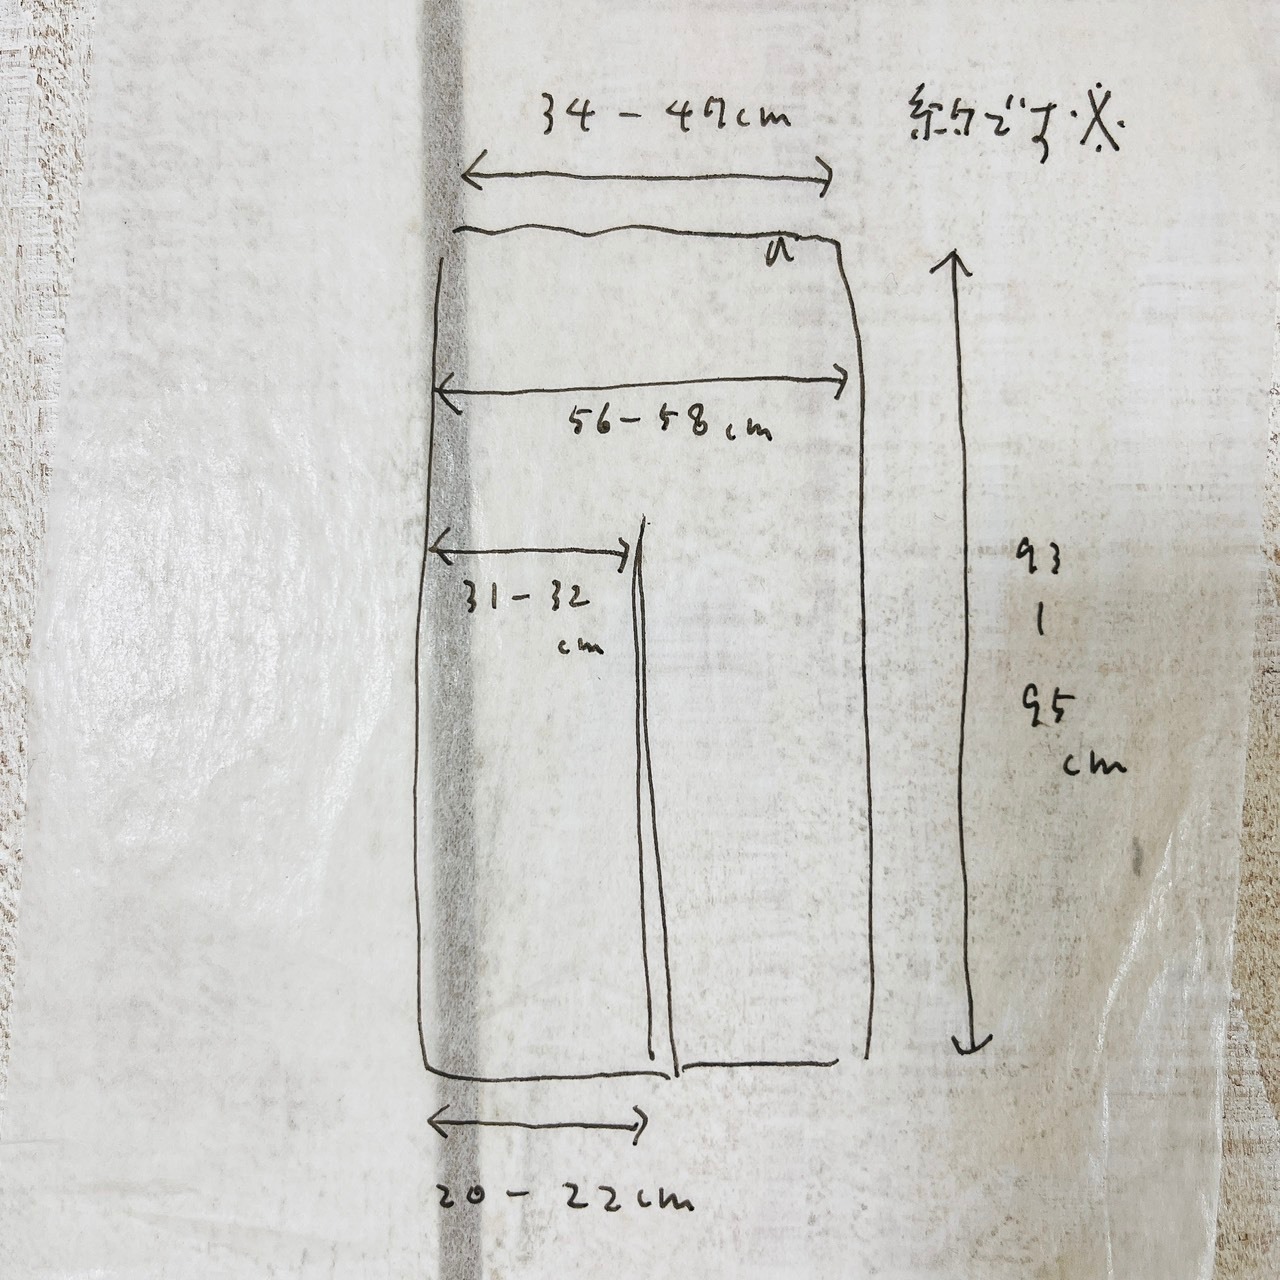 34-47cm
約です※
56-58cm
31-32
cm
93
|
95
cm
20-22cm